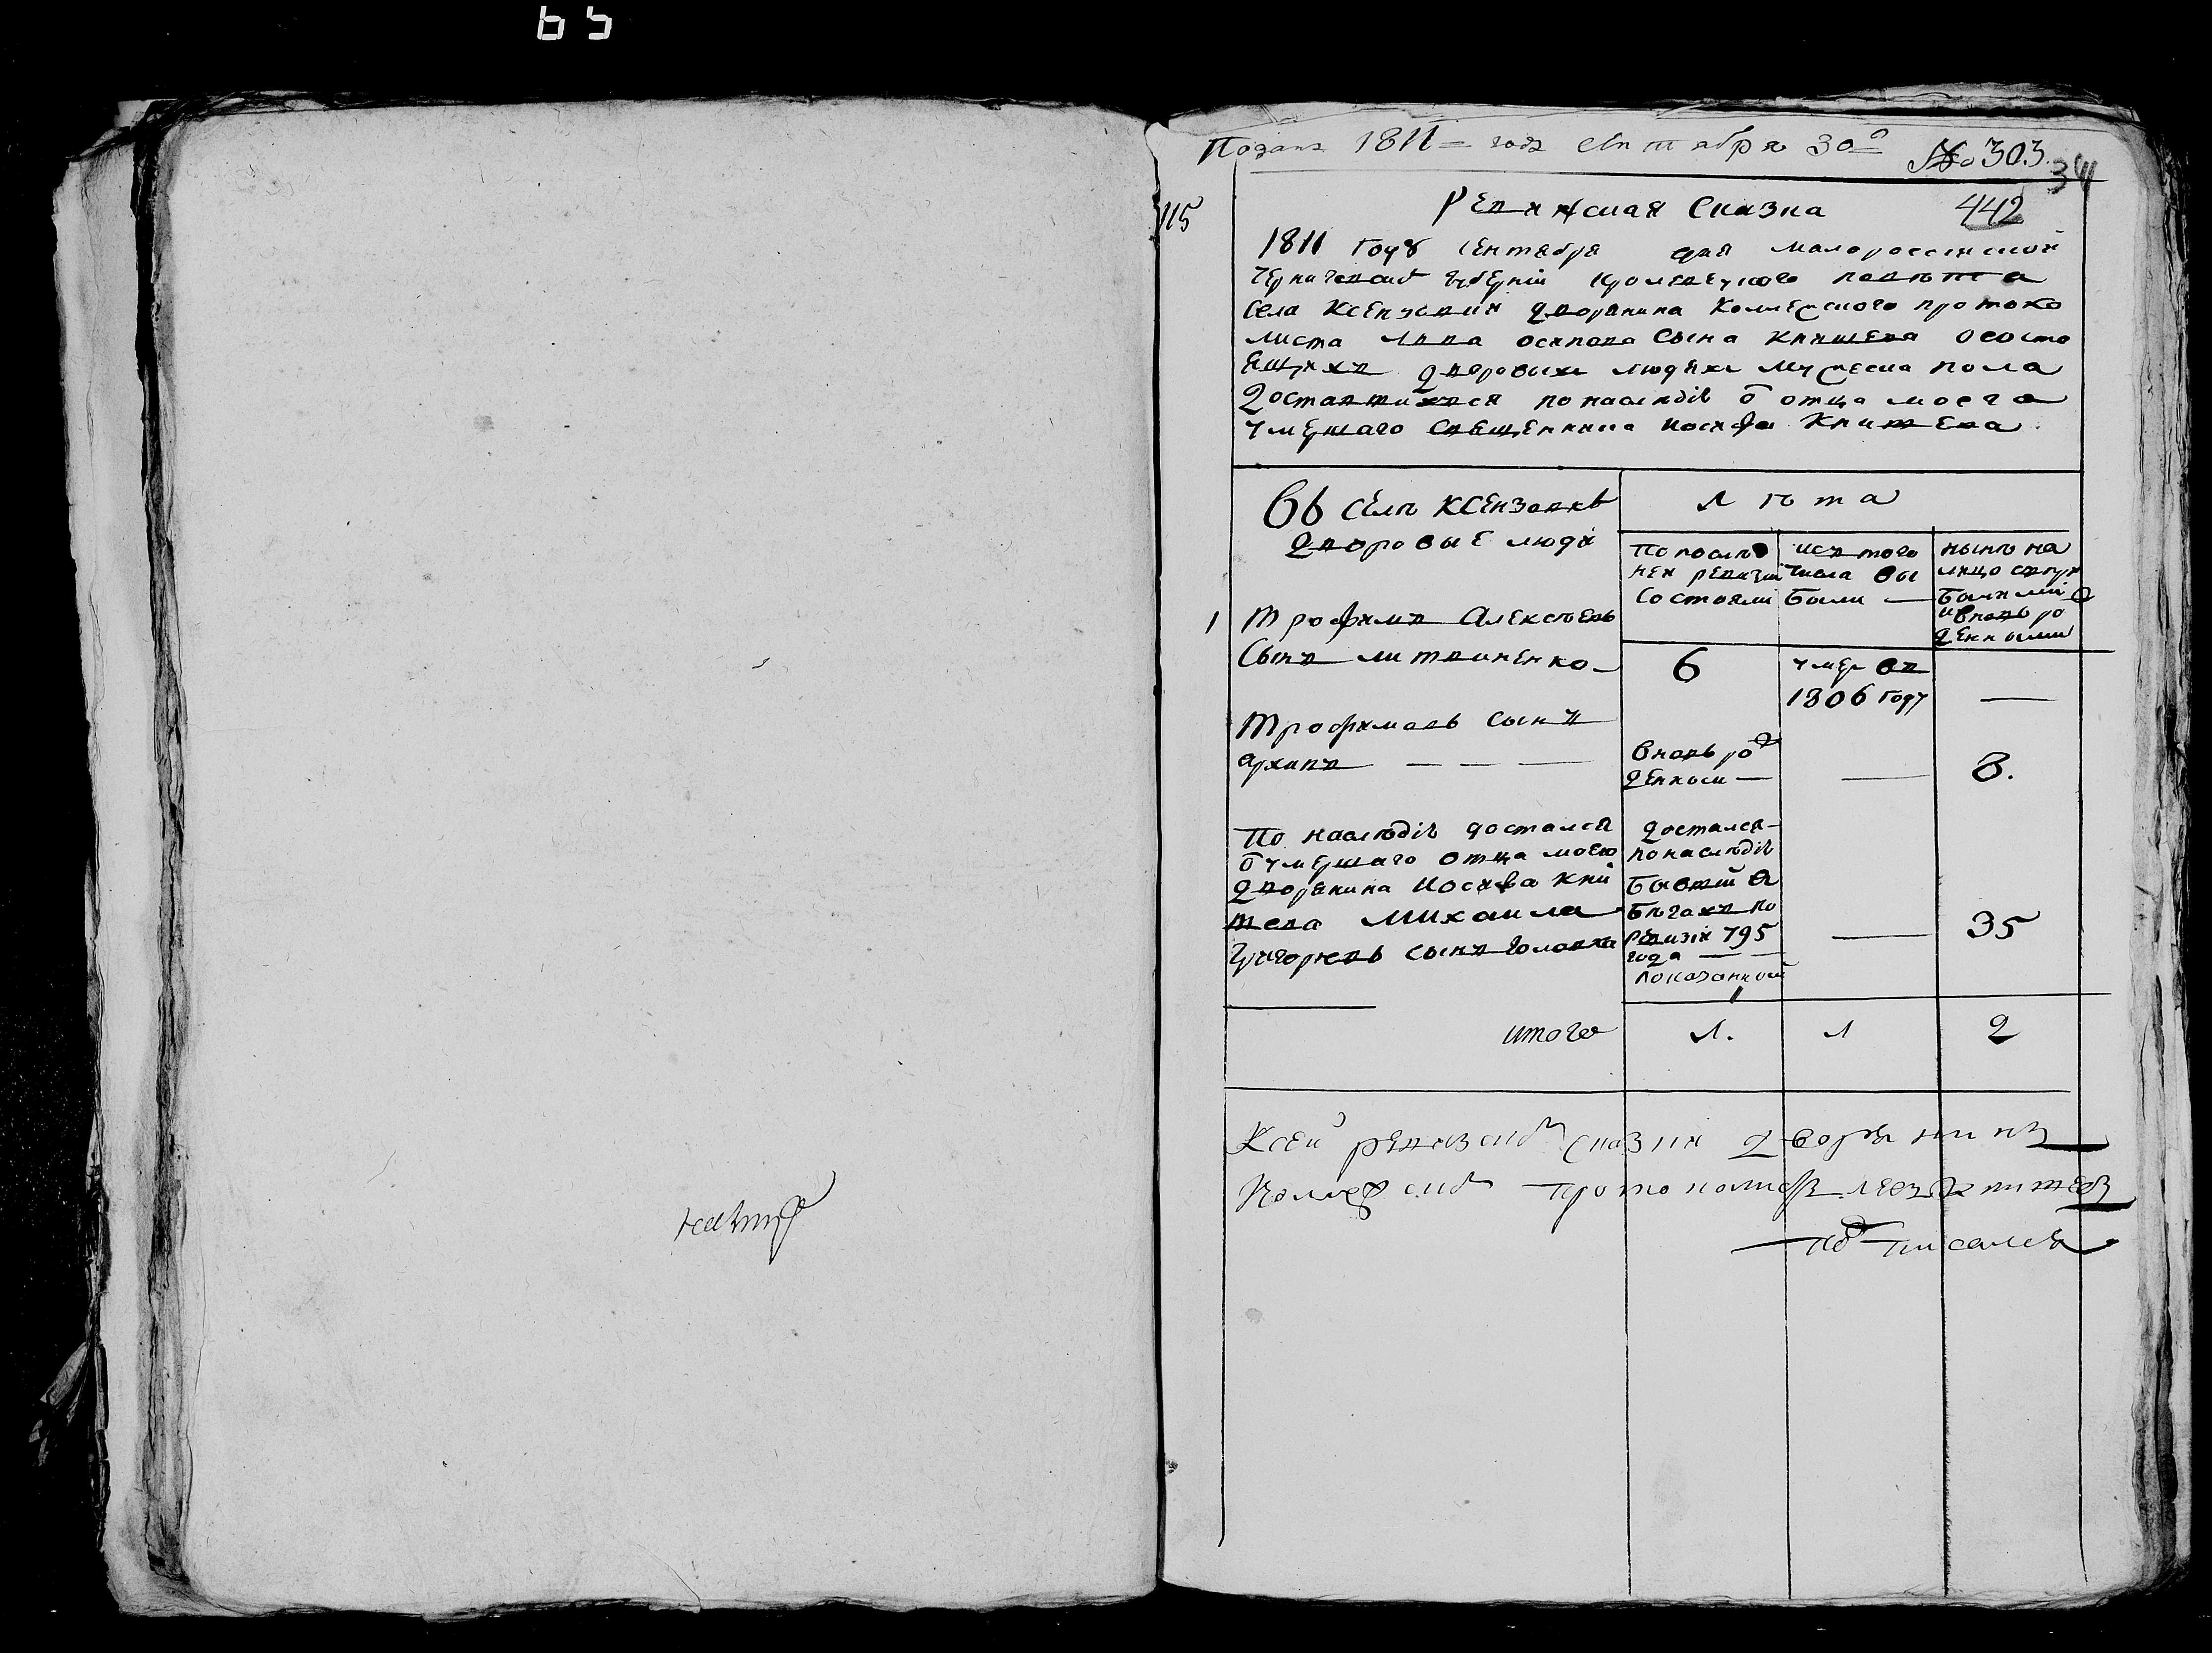 65
Поданъ 1811 года сентября 30
№ 303
34
115
Ревижская Сказка
442
1811 году сентября дня малороссійской
Черниговской губерніи кролевецкого повѣта
села Ксензовки дворянина Коллежского протоко
листа Лвва осипова сына Книшева о состо
ящихъ дворовыхъ людяхъ мужеска пола
доставшихся по наслѣдію отъ отца моего
умершаго священника Иосифа Книшева
Въ селѣ Ксензовкѣ
дворовые люди
Лѣта
По послѣд
ней ревизіи
состояли
исъ того
числа вы
были
нынѣ на
лицо
и вновь ро
жденными
1
Трофимъ Алексѣевъ
сынъ литвиненко
6
умеръ въ
1806 году
Трофимовъ сынъ
архипъ
вновь ро
жденный
8.
По наслѣдію достался
отъ умершаго отца моего
дворянина Иосифа Кни
шева Михаила
Григорьевъ сынъ головка
достался
по наслѣдію
бывшій в
бѣгахъ по
ревизіи 795
года
показанной
35
итого
1.
1
2
К сей ревизской сказки дворянинъ
Коллежской протоколистъ левъ книшевъ
подписался